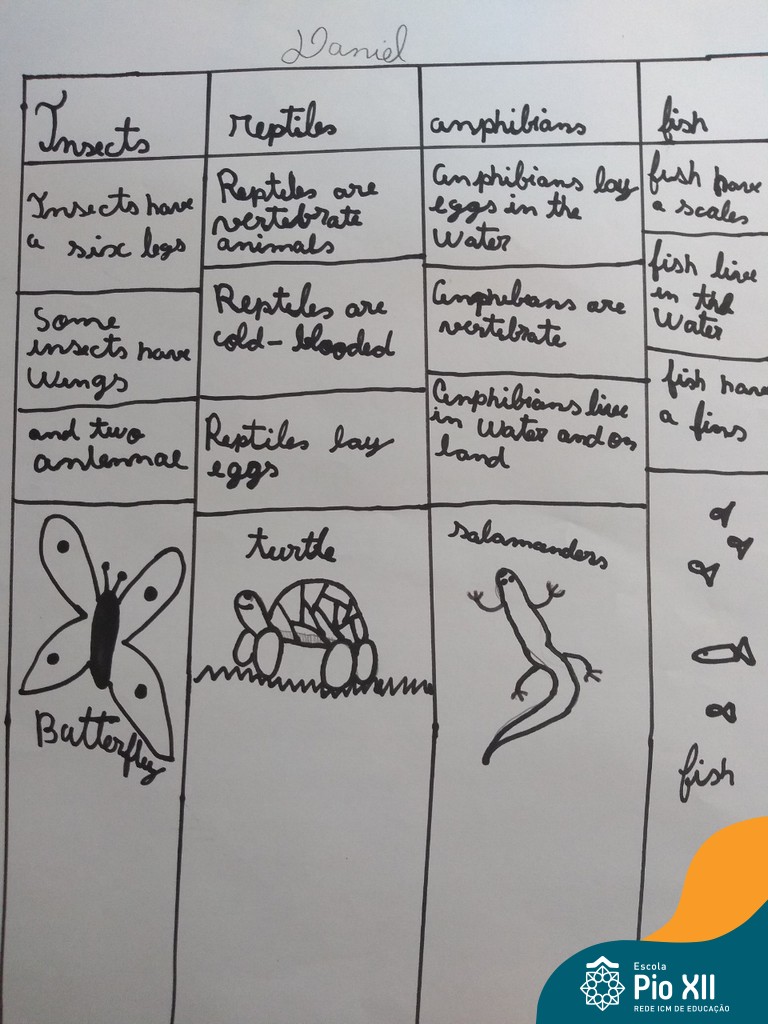 Daniel
Insects
Insects have
a six legs
Some
insects have
Wings
and two
antennae
Batterfly
reptiles
Reptiles are
vertebrate
animals
Reptiles are
cold-blooded
Reptiles lay
eggs
turtle
amphibians
Amphibians lay
eggs in the
Water
Amphibians are
vertebrate
Amphibians live
in Water and on
land
salamanders
fish
fish have
a scales
fish live
in the
Water
fish have
a fins
fish
Escola
Pio XII
REDE ICM DE EDUCAÇÃO